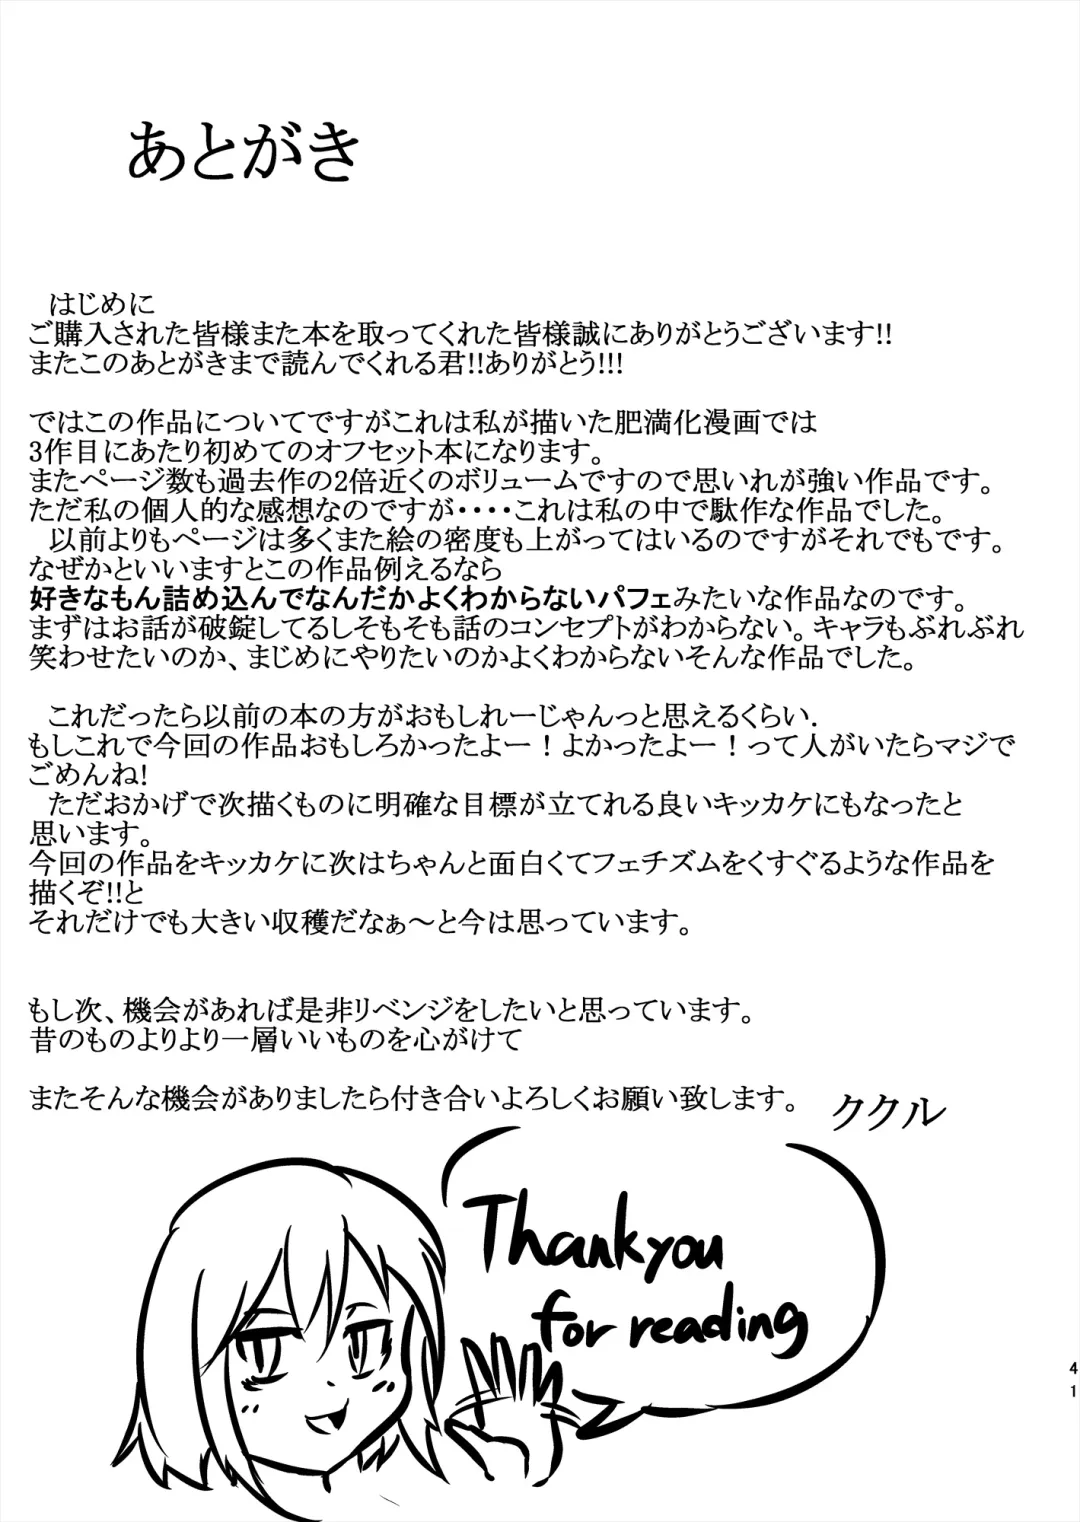 あとがき
はじめに
ご購入された皆様また本を取ってくれた皆様誠にありがとうございます!!
またこのあとがきまで読んでくれる君!!ありがとう!!!
ではこの作品についてですがこれは私が描いた肥満化漫画では
3作目にあたり初めてのオフセット本になります。
またページ数も過去作の2倍近くのボリュームですので思いれが強い作品です。
ただ私の個人的な感想なのですが・・・・これは私の中で駄作な作品でした。
以前よりもページは多くまた絵の密度も上がってはいるのですがそれでもです。
なぜかといいますとこの作品例えるなら
好きなもん詰め込んでなんだかよくわからないパフェみたいな作品なのです。
まずはお話が破錠してるしそもそも話のコンセプトがわからない。キャラもぶれぶれ
笑わせたいのか、まじめにやりたいのかよくわからないそんな作品でした。
これだったら以前の本の方がおもしれーじゃんっと思えるくらい.
もしこれで今回の作品おもしろかったよー！よかったよー！って人がいたらマジで
ごめんね!
ただおかげで次描くものに明確な目標が立てれる良いキッカケにもなったと
思います。
今回の作品をキッカケに次はちゃんと面白くてフェチズムをくすぐるような作品を
描くぞ!!と
それだけでも大きい収穫だなぁ～と今は思っています。
もし次、機会があれば是非リベンジをしたいと思っています。
昔のものよりより一層いいものを心がけて
またそんな機会がありましたら付き合いよろしくお願い致します。
ククル
Thank you
for reading
41